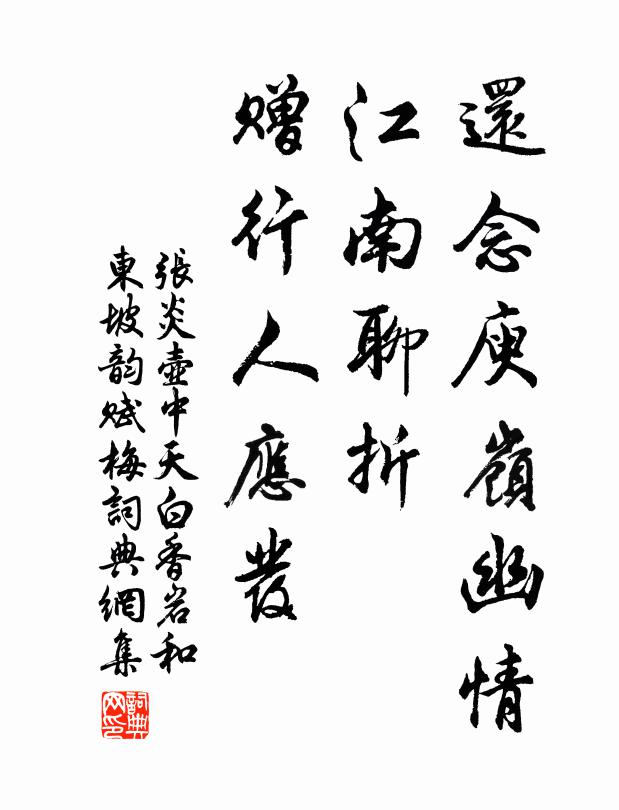 還念庾嶺幽情
江南聊折
贈行人應發
張炎壺中天白香岩和
東坡韵賦梅詞典網集
詞典
网印